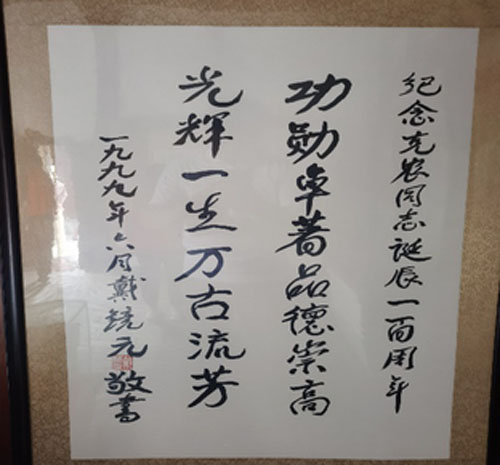 纪念克农同志诞辰一百周年
功勋卓著品德崇高
光辉一生万古流芳
一九九九年六月戴镜元敬书